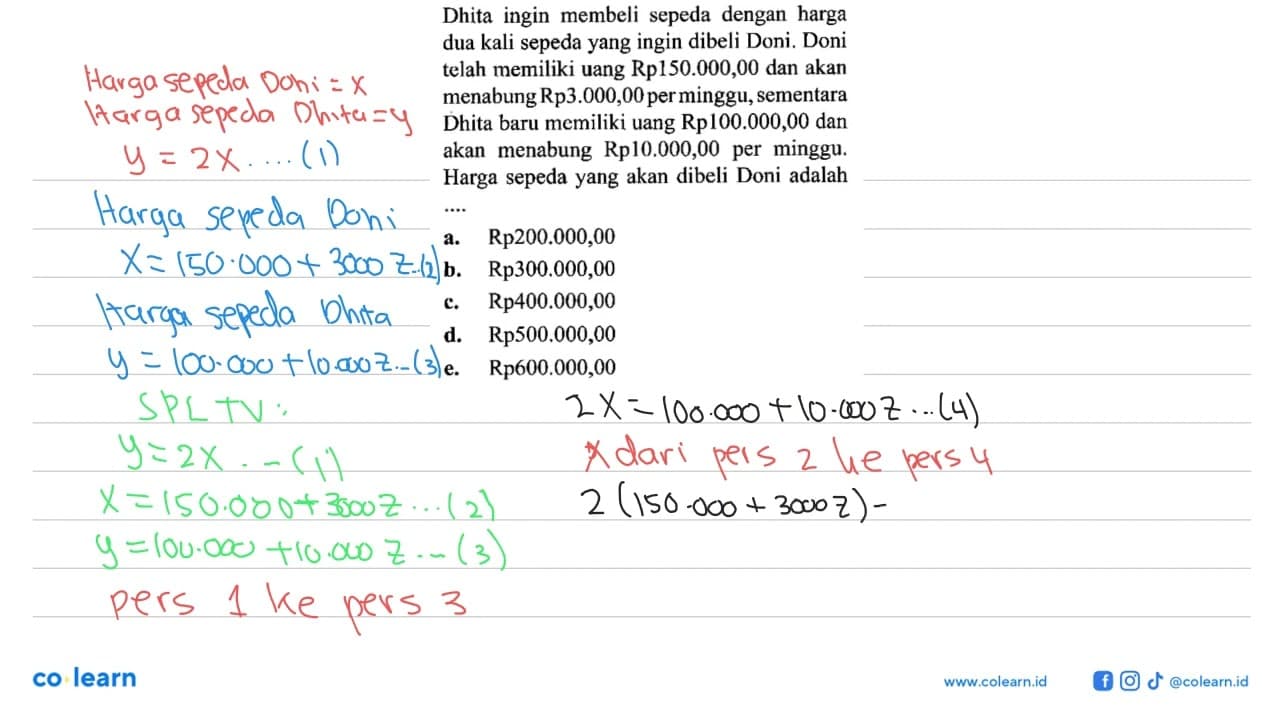 Dhita ingin membeli sepeda dengan harga
dua kali sepeda yang ingin dibeli Doni. Doni
telah memiliki uang Rp150.000,00 dan akan
menabung Rp3.000,00 per minggu, sementara
Dhita baru memiliki uang Rp100.000,00 dan
akan menabung Rp10.000,00 per minggu.
Harga sepeda yang akan dibeli Doni adalah
....
a. Rp200.000,00
b. Rp300.000,00
c. Rp400.000,00
d. Rp500.000,00
e. Rp600.000,00
Harga sepeda Doni = x
Harga sepeda Dhita = y
y = 2x .... (1)
Harga sepeda Doni
x = 150.000 + 3000 z ..(2)
Harga sepeda Dhita
y = 100.000 + 10.000 z ..(3)
SPLTV :
y = 2x ... (1)
x = 150.000 + 3000 z ... (2)
y = 100.000 + 10.000 z ... (3)
pers 1 ke pers 3
2x = 100.000 + 10.000 z ... (4)
x dari pers 2 ke pers 4
2 (150.000 + 3000 z) -
co learn
www.colearn.id
@colearn.id